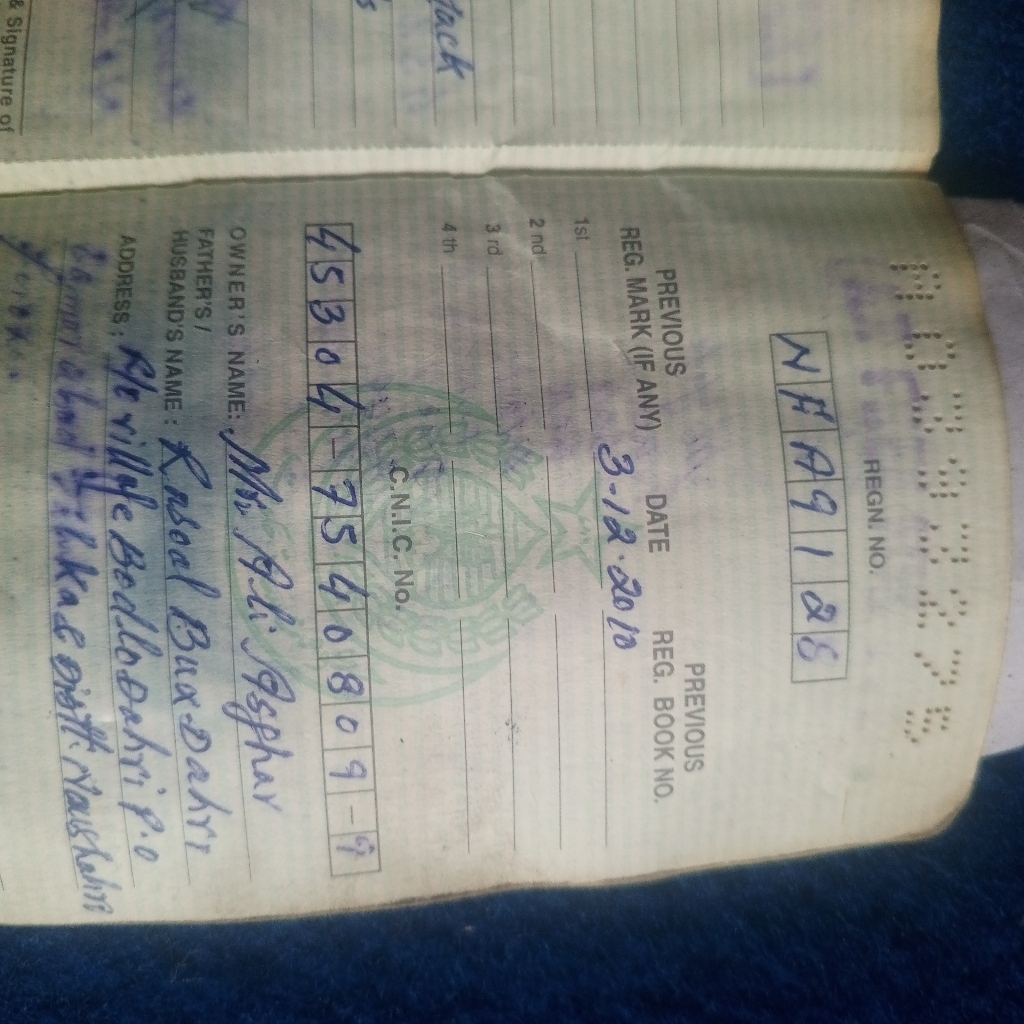 REGN. NO.
N A A 9 1 2
PREVIOUS DATE PREVIOUS
REG. MARK (IF ANY) REG. BOOK NO.
3-12-2010
1st
2 nd
3 rd
4 th
C.N.I.C. No.
45304-7540809-9
OWNER'S NAME: Mr. Ali Asghar
FATHER'S /
HUSBAND'S NAME : Rasool Bux Dahri
ADDRESS : R/o village Bodlo Dahri P.O
Distt. Naushahro
ack
& Signature of